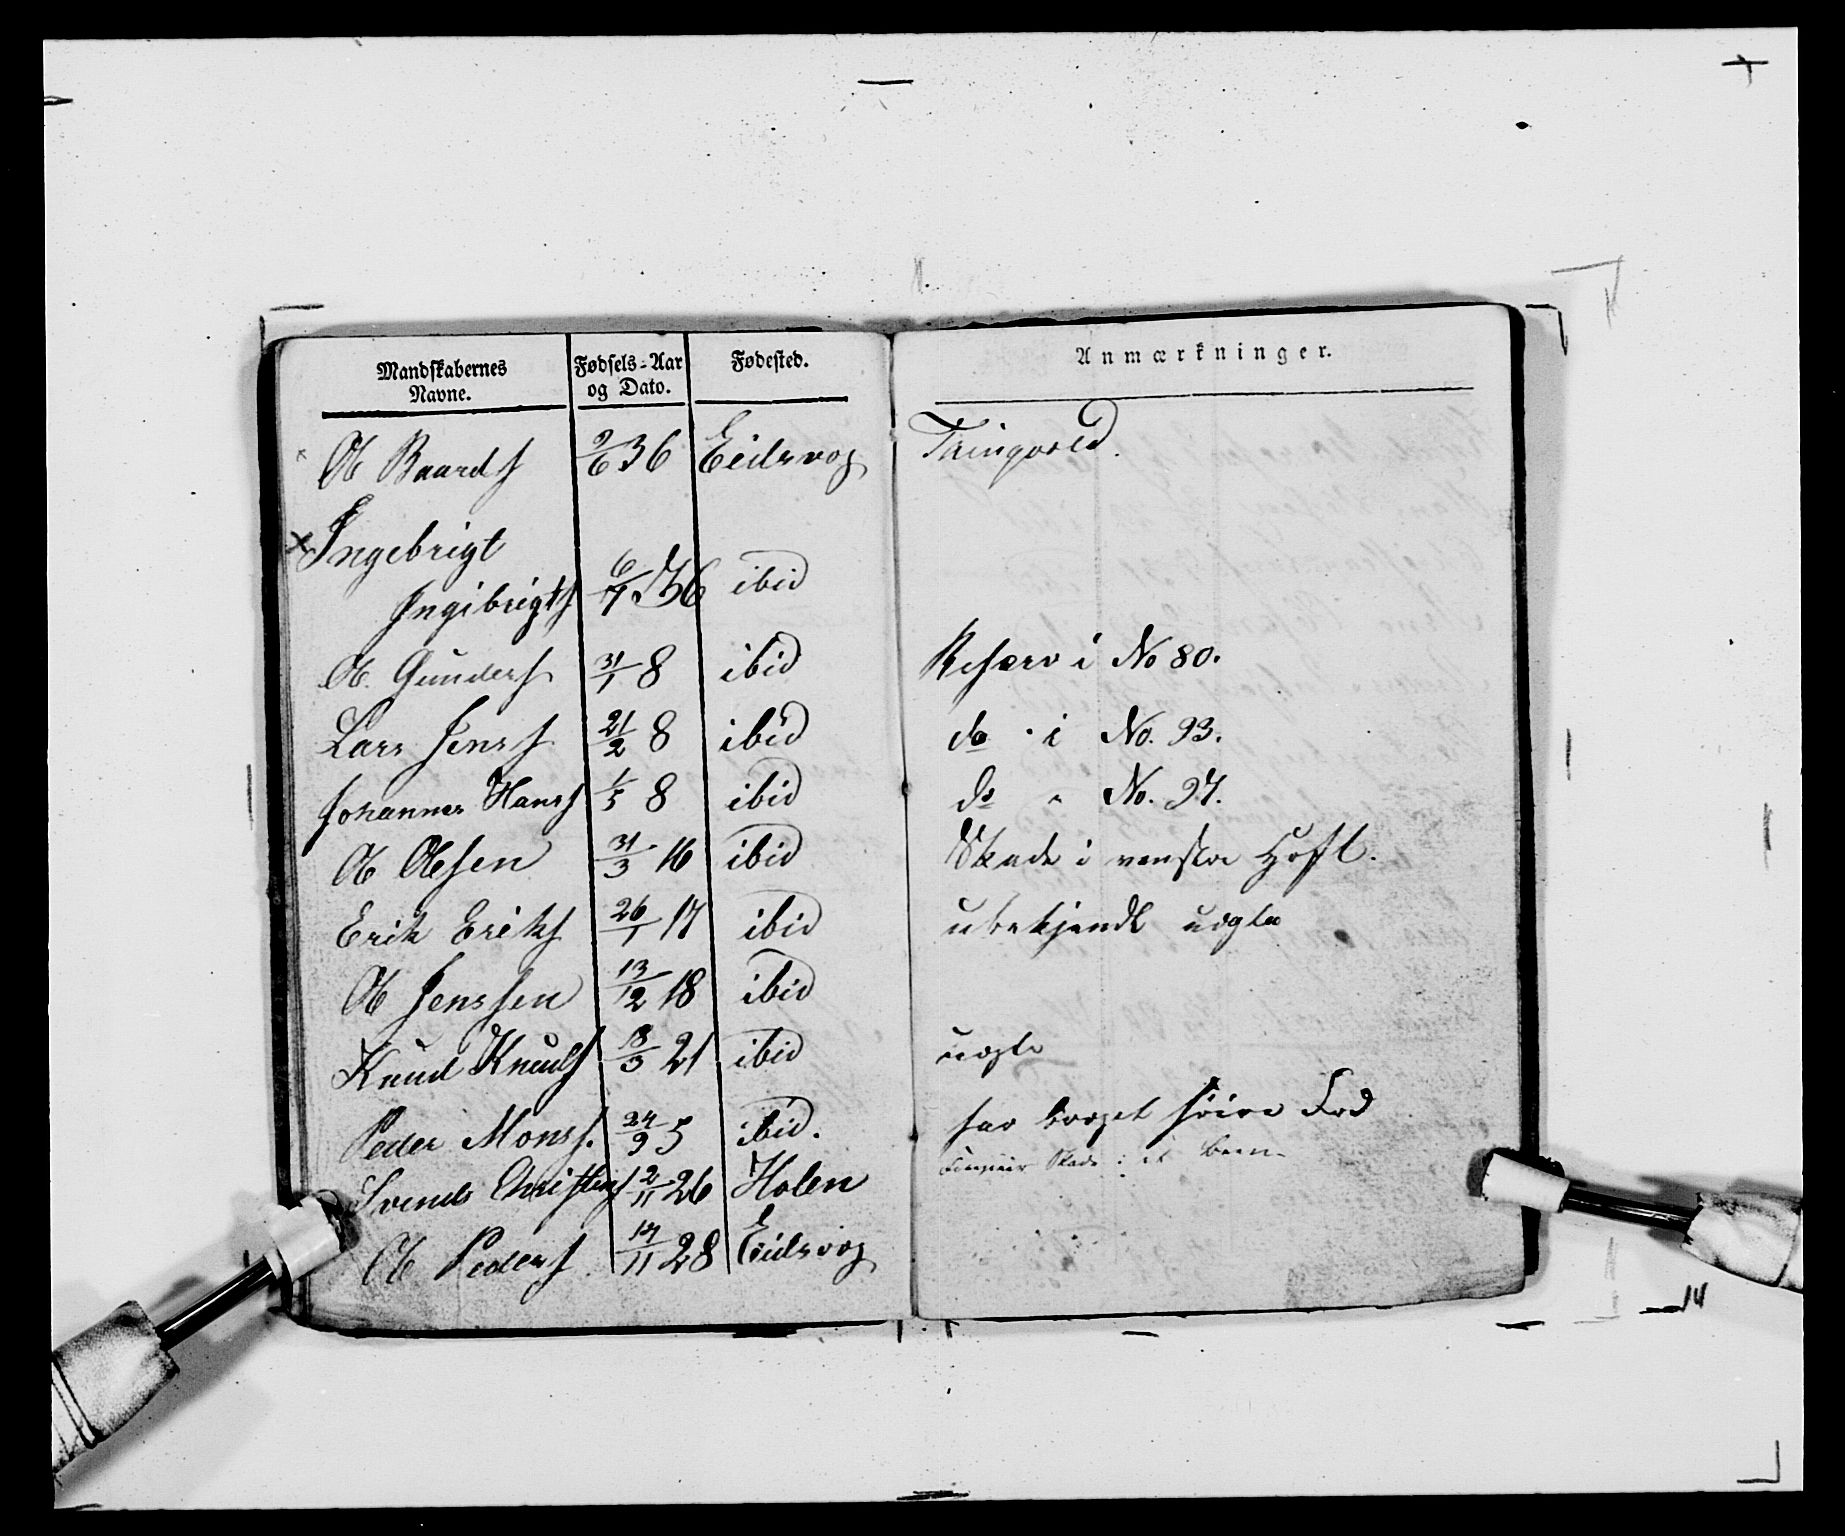 Mandskabernes Navne. Fødsels-Aar og Dato. Fødested. Anmærkninger.
Ol Baards 9/6 36 Eidsvog Tingvold.
Ingebrigt
Ingibrigts 6/7 36 ibid
Ol. Gunders 31/1 8 ibid Reserv i No 80.
Lars Jens 21/2 8 ibid do i No. 93.
Johannes Hans 1/5 8 ibid do " No. 97.
Ol Olsen 31/3 16 ibid Skade i venstre Hoft.
Erik Eriks 26/1 17 ibid ubekjendt
Ol Jenssen 13/12 18 ibid
Knud Knuds 18/3 21 ibid
Peder Mons. 24/9 5 ibid. har høire Fod
Svend Christens 12/11 26 Holen Skade i et Been
Ol Peders 17/11 28 Eidsvog
14